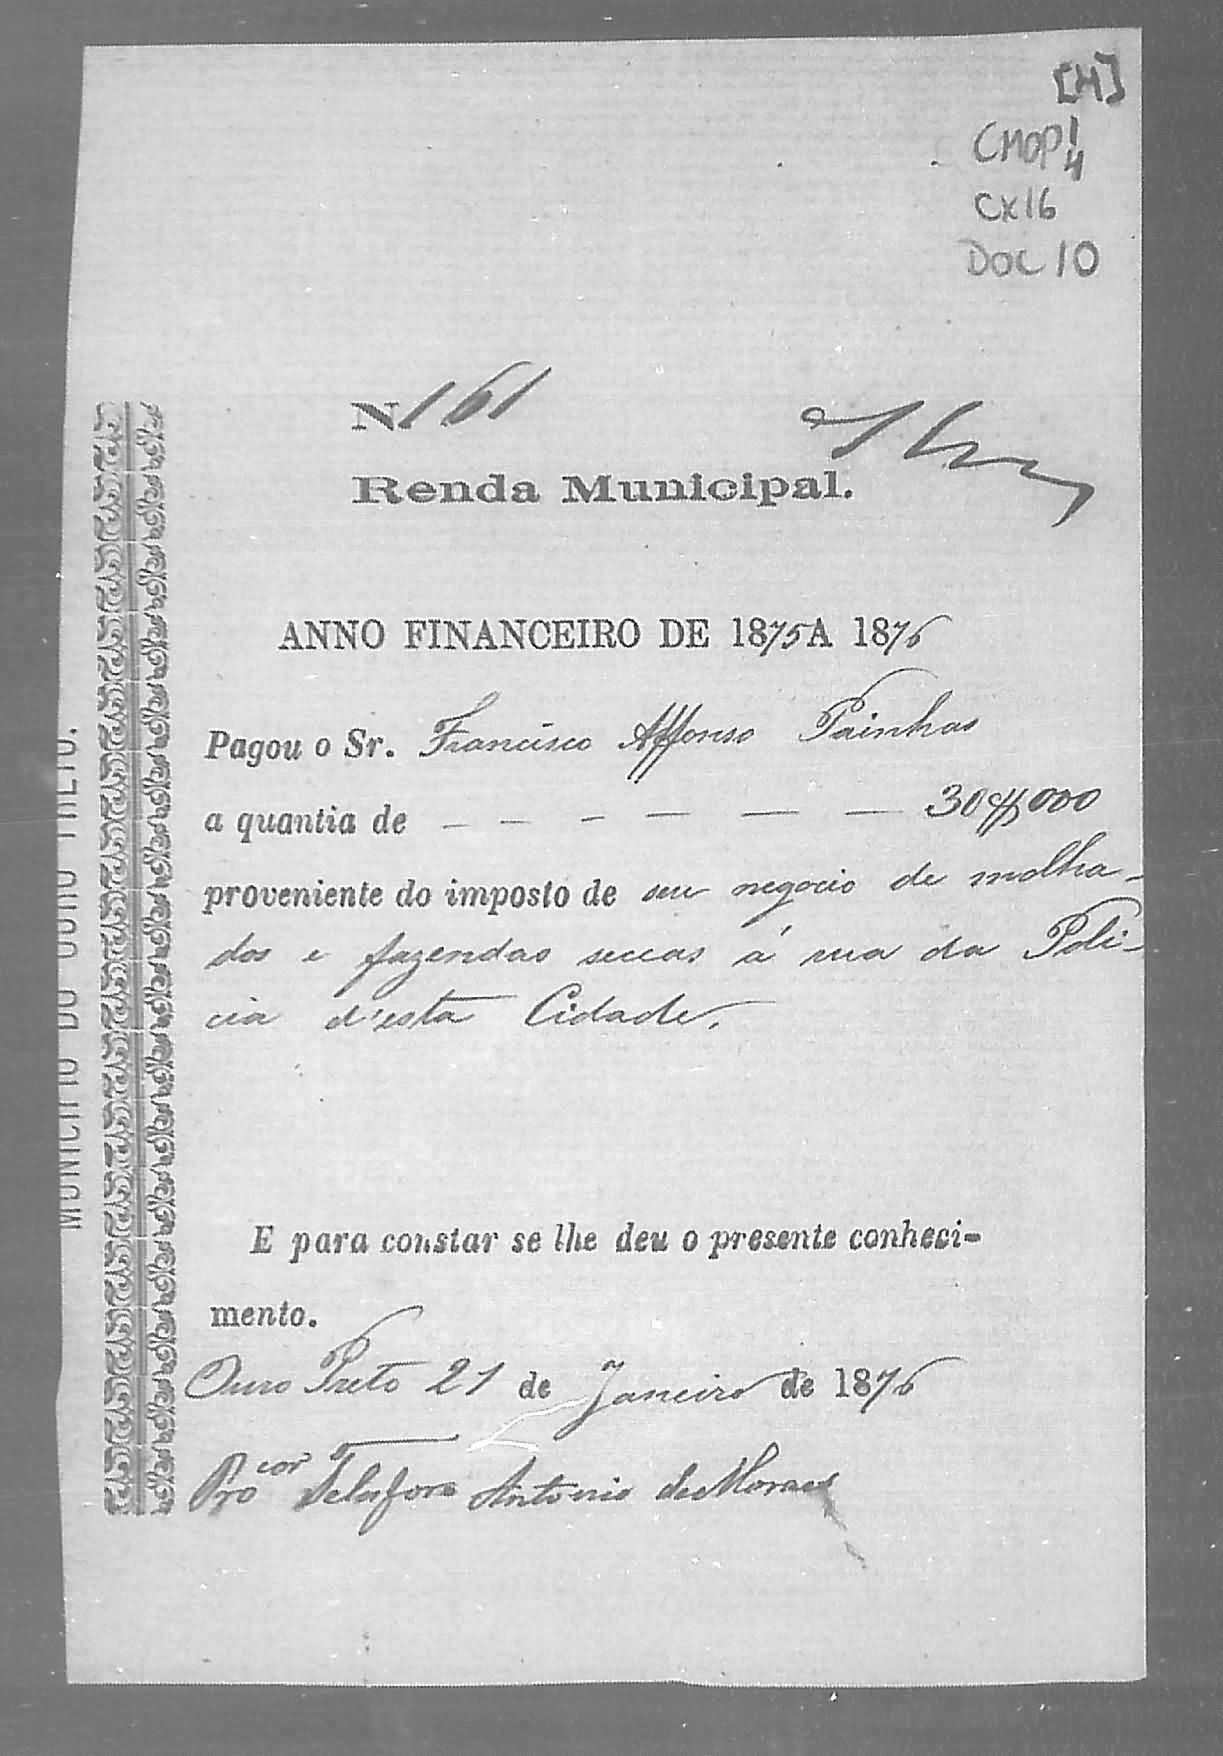 [4]
CMOP 1/4
CX16
DOC 10
N 161
Renda Municipal.
ANNO FINANCEIRO DE 1875 A 1876
Pagou o Sr. Francisco Affonso Painhas
a quantia de - - - - - - 30$000
proveniente do imposto de seu negocio de molha-
dos e fazendas seccas á rua da Poli-
cia d'esta Cidade.
E para constar se lhe deu o presente conheci-
mento.
Ouro Preto 21 de Janeiro de 1876
Procor Telesforo Antonio de Moraes
MUNICIPIO DO OURO PRETO.